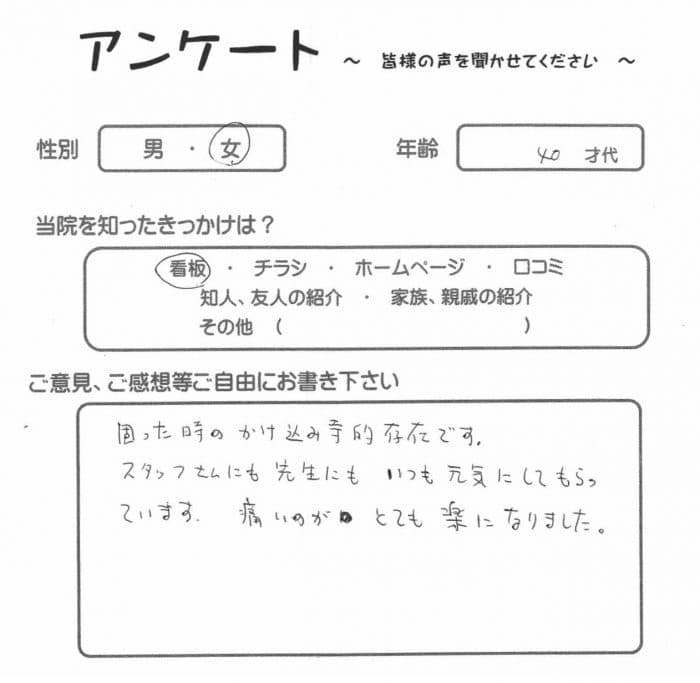 アンケート ~ 皆様の声を聞かせてください ~
性別 男 ・ 女 年齢 40 才代
当院を知ったきっかけは?
看板 ・ チラシ ・ ホームページ ・ 口コミ
知人、友人の紹介 ・ 家族、親戚の紹介
その他 ( )
ご意見、ご感想等ご自由にお書き下さい
困った時の かけ込み寺的存在です。
スタッフさんにも 先生にも いつも 元気にしてもらっ
ています. 痛いのが とても 楽に なりました。